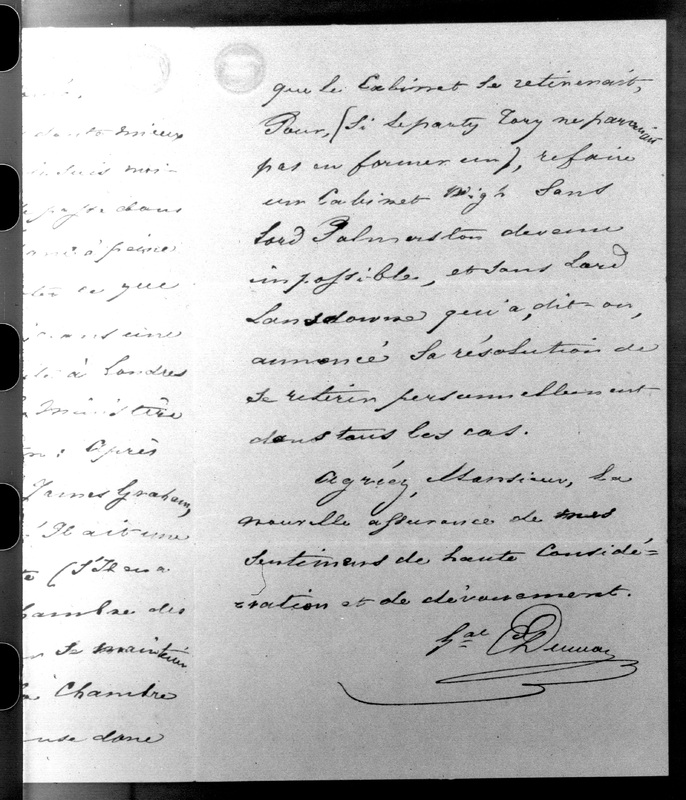 dont mieux
je suis moi-
se passe dans
à peine
ce que
une
à Londres
ministère
: Après
James Graham,
Il ait une
(S'il en a
chambre des
se maintenir
Chambre
donc
que le Cabinet se retirerait,
Pour, (Si le party Tory ne parvenait
pas en former un), refaire
un Cabinet Wigh Sans
Lord Palmerston devenu
impossible, et Sans Lord
Lansdowne qui a, dit-on,
annoncé Sa résolution de
se retirer personnellement
dans tous les cas.
Agréez, Monsieur, la
nouvelle assurance de mes
Sentimens de haute Considé=
ration et de dévouement.
Gal